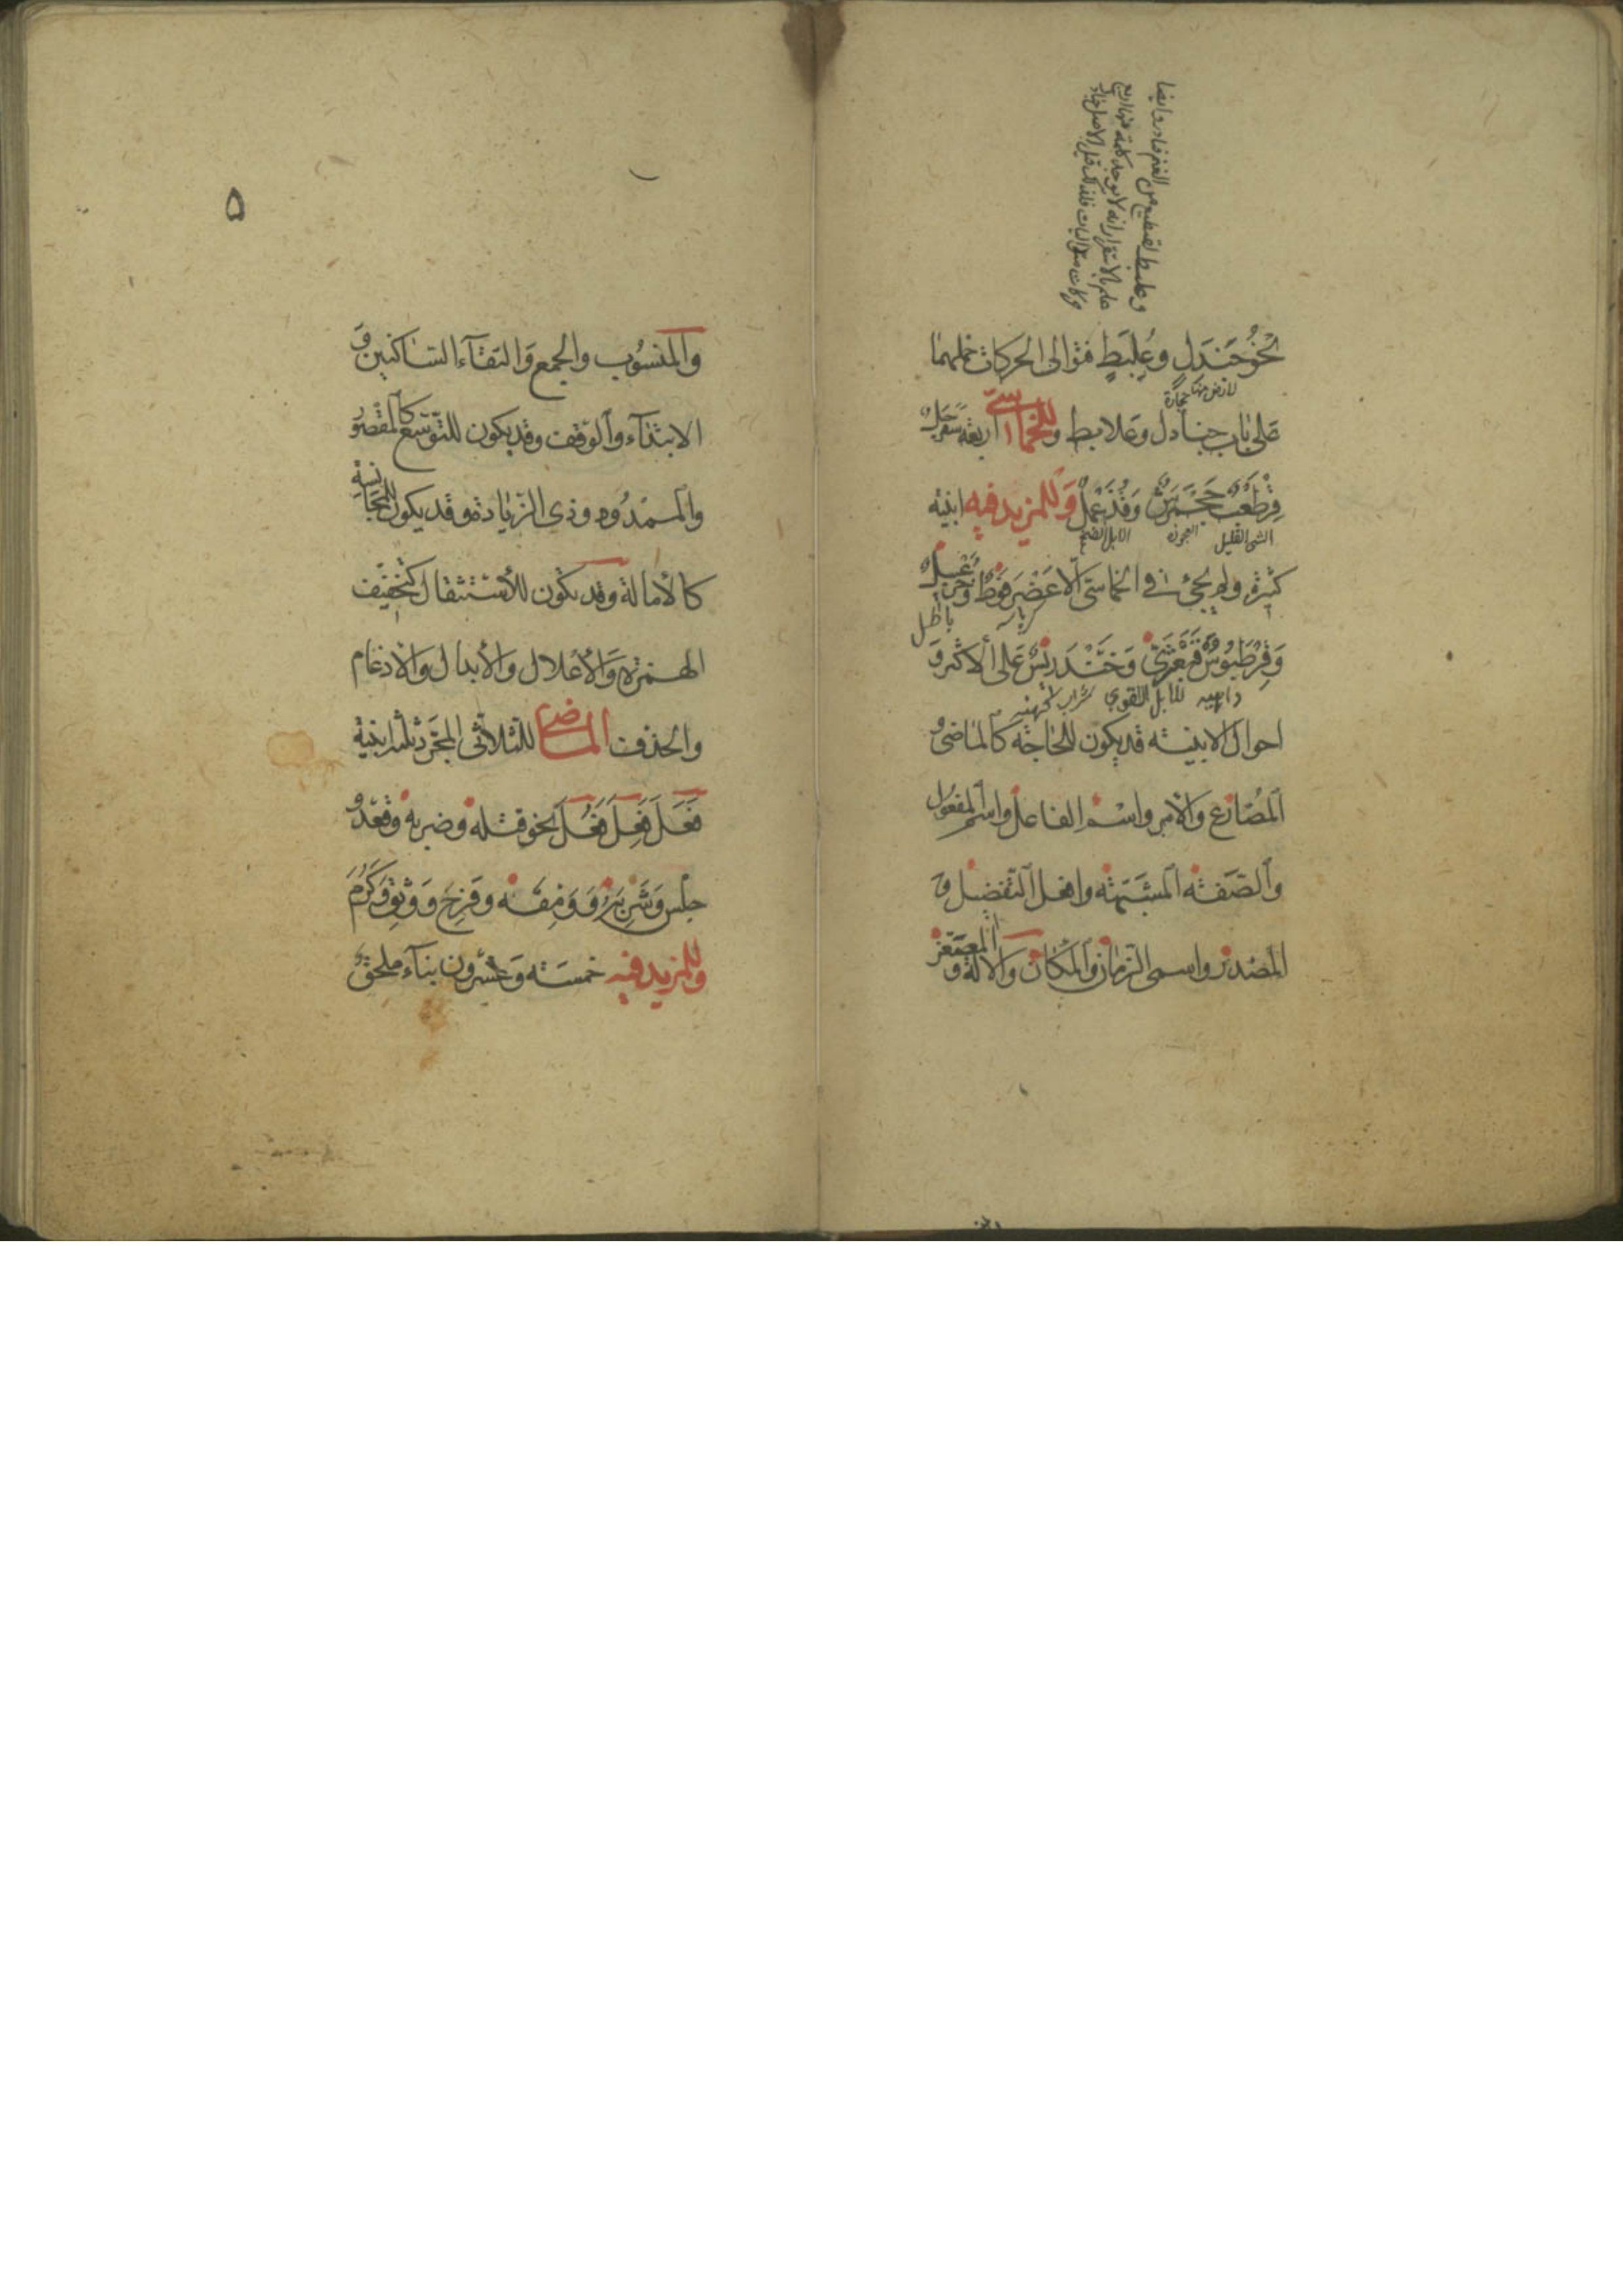 نحو جَنَدَلٍ وعُلَبِطٍ فتوالى الحركات حملهما
لارض فيها حجارة
على باب جنادل وعلابط وللخماسى اربعة سفرجل
قِرْطَعْبٌ جَحْمَرِشٌ وَقُذَعْمِلٌ وَللمزيد فيه ابنية
الشئ القليل العجوز الابل الضخم
كثيرة ولم يجئ فى الخماسى الا عَضْرَفوطٌ وخزعبيل
باطل
وَقِرْطَبُوسٌ قَبَعْثَرىً وَخَنْدَرِيسٌ عَلى الاكثر وَ
داهيه للابل القوي شراب كهنه
احوال الابنية قد يكون للحاجة كالماضى و
المُضَارع وَالامر واسْم الفاعل واسم المفعول
وَالصّفة المشبّهة وافعل التفضيل وَ
المصْدر واسمى الزمان والمكان وَالالة و المصغر
٥
والمنسُوب والجمع وَالتقآء الساكنين وَ
الابتدآء والوقف وقد يكون للتوسّع كالمقصُور
والممدُود وذى الزيادة وقد يكون للمجانسة
كالأمالة وقد يكون للأستثقال كتخفيف
الهمزة وَالأعلال والأبدال والادغام
والحذف الماضى للثلاثى المجرّد ثلثة ابنية
فَعَلَ فَعِلَ فَعُلَ نحو قتله وضربه وقعَدَ و
جلس وَشَرِبَهُ وَوَمِقَه وفَرِحَ وَوَثِقَ وَكَرُمَ
وَللمزيد فيه خمسَة وَعشرون بنآء ملحق